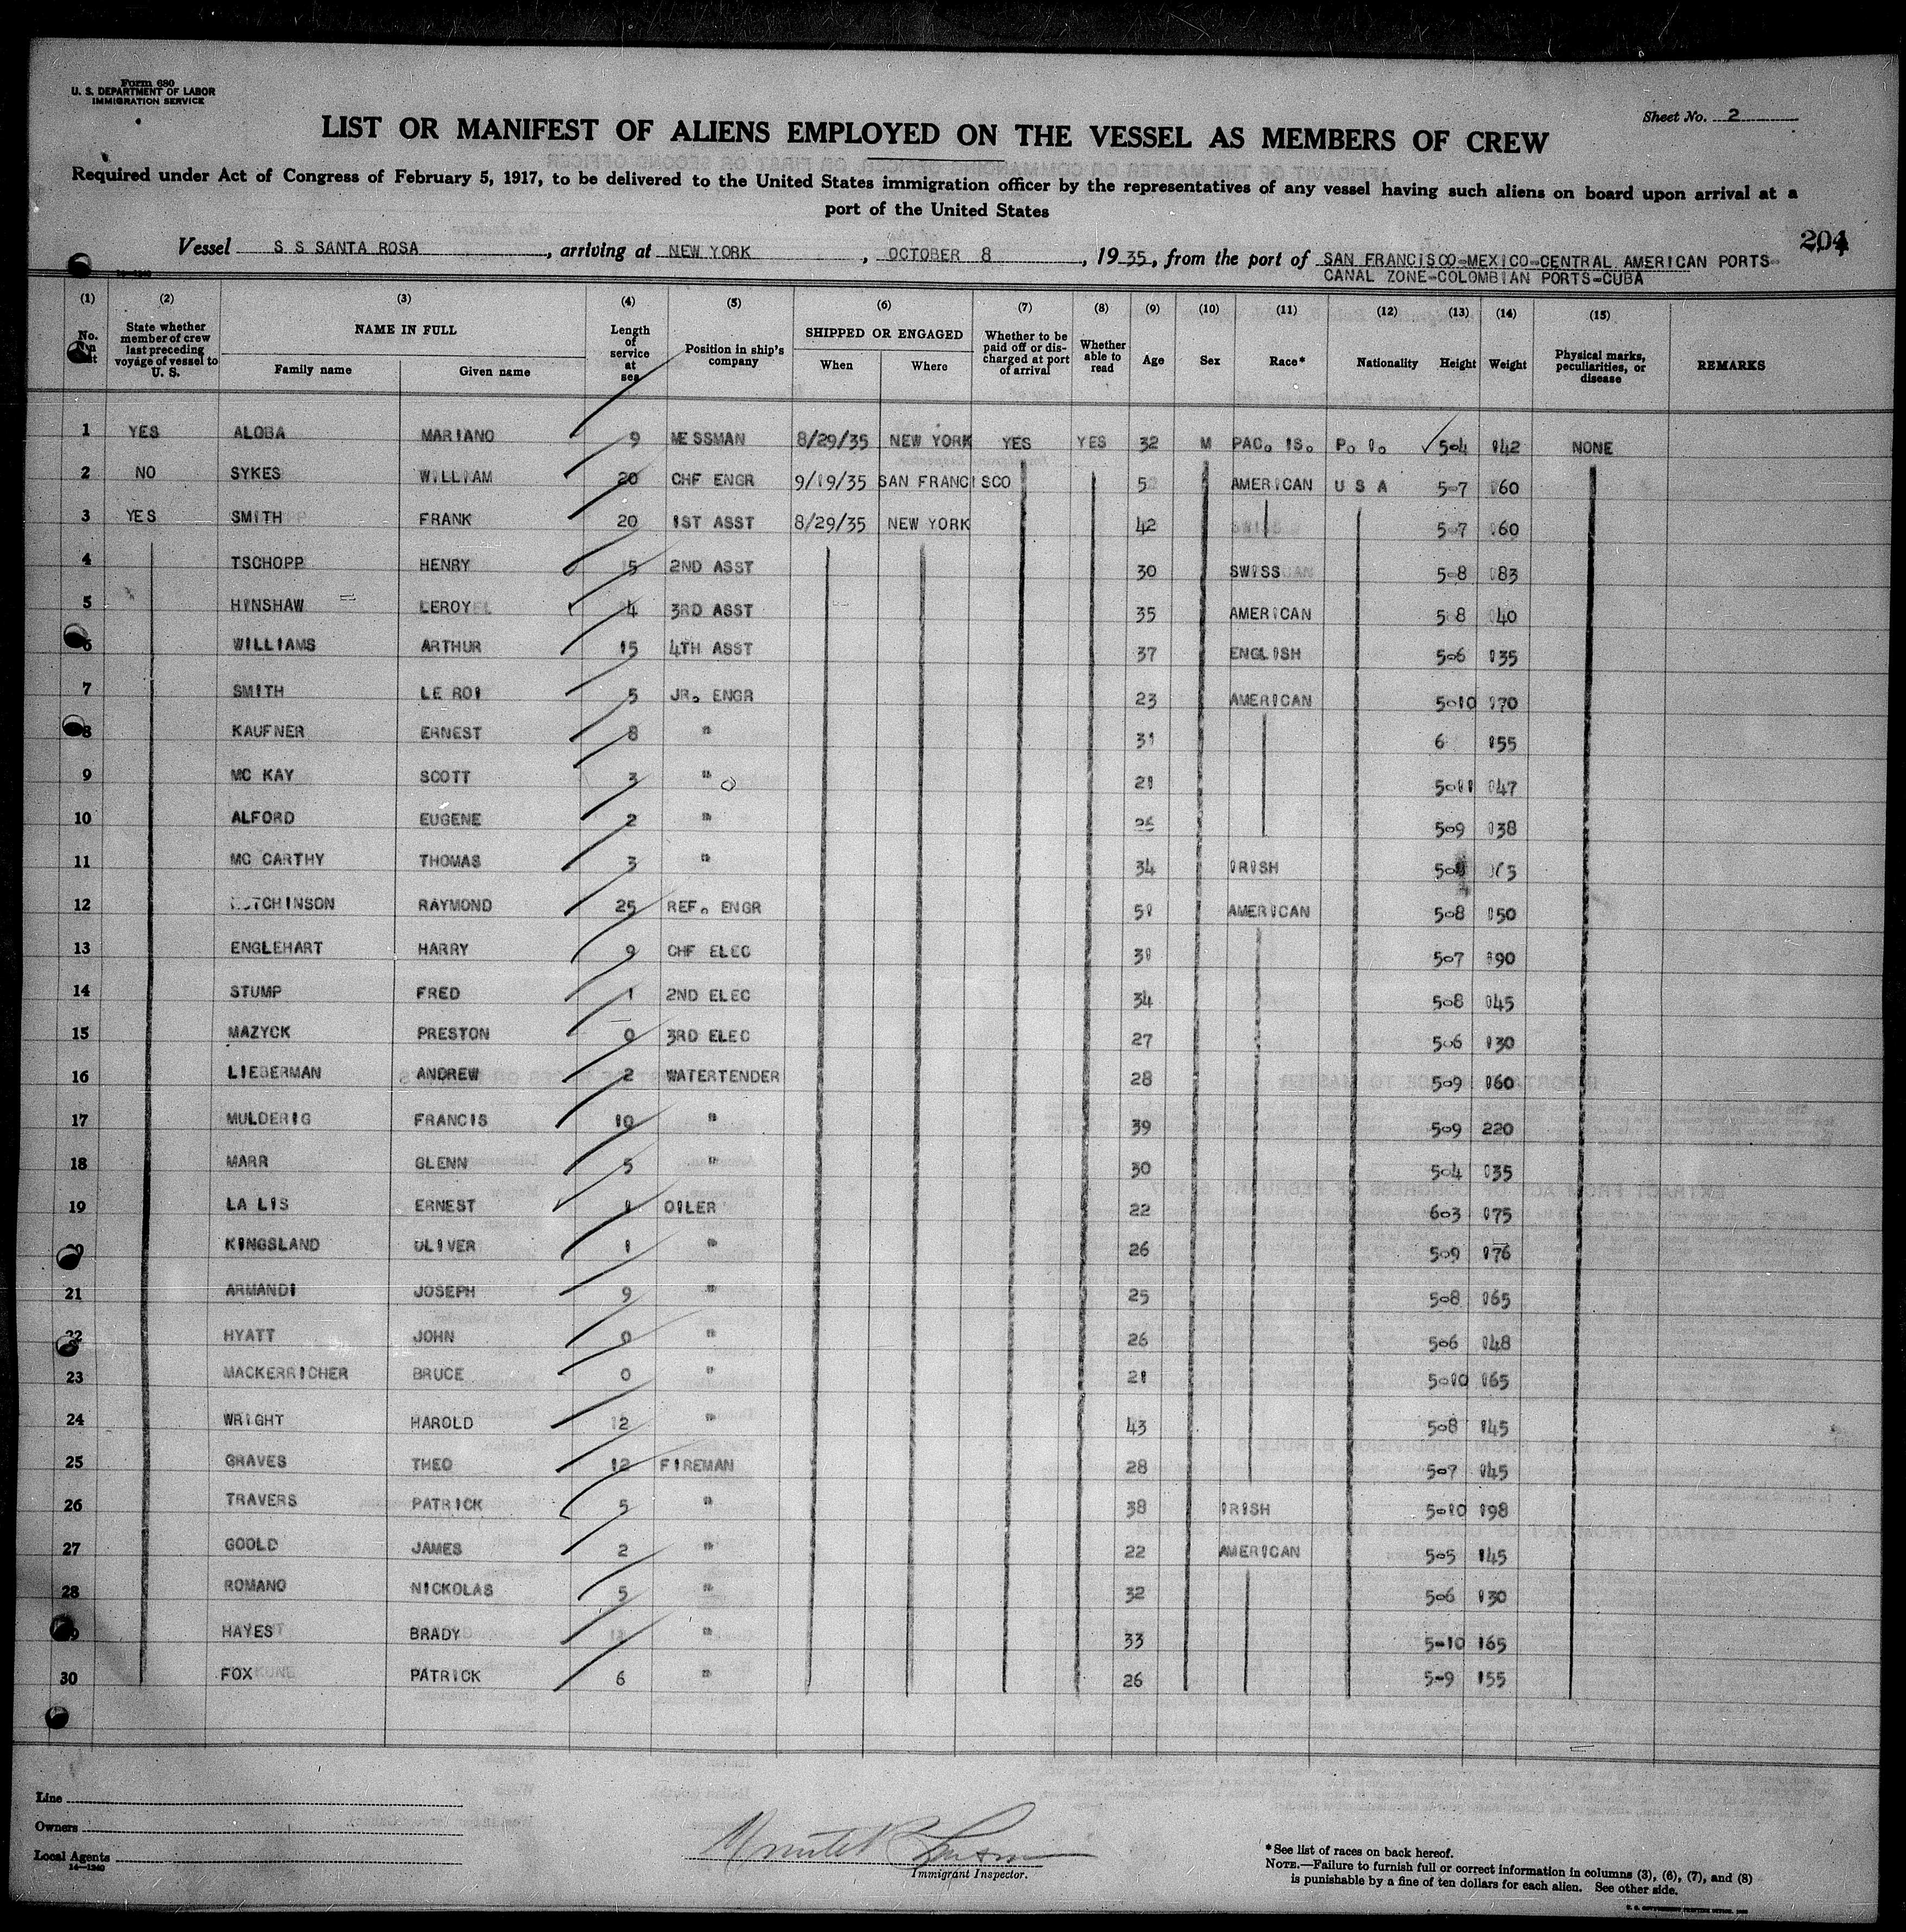 Form 680
U. S. DEPARTMENT OF LABOR
IMMIGRATION SERVICE
Sheet No. 2
LIST OR MANIFEST OF ALIENS EMPLOYED ON THE VESSEL AS MEMBERS OF CREW
Required under Act of Congress of February 5, 1917, to be delivered to the United States immigration officer by the representatives of any vessel having such aliens on board upon arrival at a
port of the United States
204
Vessel S S SANTA ROSA, arriving at NEW YORK, OCTOBER 8, 1935, from the port of SAN FRANCISCO-MEXICO-CENTRAL AMERICAN PORTS-
CANAL ZONE-COLOMBIAN PORTS-CUBA
(1) (2) (3) (4) (5) (6) (7) (8) (9) (10) (11) (12) (13) (14) (15)
No. State whether member of crew last preceding voyage of vessel to U. S. NAME IN FULL Family name Given name Length of service at sea Position in ship's company SHIPPED OR ENGAGED When Where Whether to be paid off or discharged at port of arrival Whether able to read Age Sex Race* Nationality Height Weight Physical marks, peculiarities, or disease REMARKS
1 YES ALOBA MARIANO 9 MESSMAN 8/29/35 NEW YORK YES YES 32 M PAC. IS. P. I. 5-4 142 NONE
2 NO SYKES WILLIAM 20 CHF ENGR 9/19/35 SAN FRANCISCO AMERICAN U S A 5-7 160
3 YES SMITH FRANK 20 1ST ASST 8/29/35 NEW YORK 42 5-7 160
4 TSCHOPP HENRY 5 2ND ASST 30 SWISS 5-8 183
5 HINSHAW LEROY 4 3RD ASST 35 AMERICAN 5 8 140
6 WILLIAMS ARTHUR 15 4TH ASST 37 ENGLISH 5-6 135
7 SMITH LE ROI 5 JR. ENGR 23 AMERICAN 5-10 170
8 KAUFNER ERNEST 8 " 31 6 155
9 MC KAY SCOTT 3 " 21 5-11 147
10 ALFORD EUGENE 2 " 26 5-9 138
11 MC CARTHY THOMAS 3 " 34 IRISH
12 RAYMOND 25 REF. ENGR 51 AMERICAN 5-8 150
13 ENGLEHART HARRY 9 CHF ELEC 31 5-7 190
14 STUMP FRED 1 2ND ELEC 34 5-8 145
15 MAZYCK PRESTON 0 3RD ELEC 27 5-6 130
16 LIEBERMAN ANDREW 2 WATERTENDER 28 5-9 160
17 MULDERIG FRANCIS 10 " 39 5-9 220
18 MARR GLENN 5 " 30 5-4 135
19 LA LIS ERNEST 1 OILER 22 6-3 175
20 KINGSLAND OLIVER 1 " 26 5-9 176
21 ARMANDI JOSEPH 9 " 25 5-8 165
22 HYATT JOHN 0 " 26 5-6 148
23 MACKERRICHER BRUCE 0 " 21 5-10 165
24 WRIGHT HAROLD 12 " 43 5-8 145
25 GRAVES THEO 12 FIREMAN 28 5-7 145
26 TRAVERS PATRICK 5 " 38 IRISH 5-10 198
27 GOOLD JAMES 2 " 22 AMERICAN 5-5 145
28 ROMANO NICKOLAS 5 " 32 5-6 130
29 HAYES BRADY " 33 5-10 165
30 FOX PATRICK 6 " 26 5-9 155
Line
Owners
Local Agents
14-1240
Immigrant Inspector.
*See list of races on back hereof.
NOTE.—Failure to furnish full or correct information in columns (3), (6), (7), and (8)
is punishable by a fine of ten dollars for each alien. See other side.